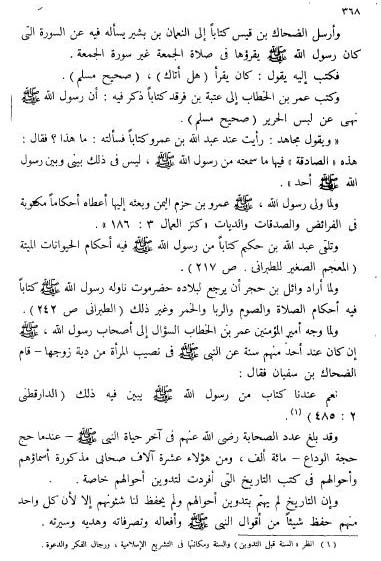 ٣٦٨
وأرسل الضحاك بن قيس كتاباً إلى النعمان بن بشير يسأله فيه عن السورة التي
كان رسول الله ﷺ يقرؤها في صلاة الجمعة غير سورة الجمعة .
فكتب إليه يقول : كان يقرأ ( هل أتاك ) ، ( صحيح مسلم ) .
وكتب عمر بن الخطاب إلى عتبة بن فرقد كتاباً ذكر فيه : أن رسول الله ﷺ
نهى عن لبس الحرير ( صحيح مسلم ) .
« ويقول مجاهد : رأيت عند عبد الله بن عمرو كتاباً فسألته : ما هذا ؟ فقال :
هذه « الصادقة » فيها ما سمعته من رسول الله ﷺ ، ليس في ذلك بيني وبين رسول
الله ﷺ أحد » .
ولما ولى رسول الله ، ﷺ عمرو بن حزم اليمن وبعثه إليها أعطاه أحكاماً مكتوبة
في الفرائض والصدقات والديات ( كنز العمال ٣ : ١٨٦ ) .
وتلقى عبد الله بن حكيم كتاباً من رسول الله ﷺ فيه أحكام الحيوانات الميتة
( المعجم الصغير للطبراني . ص ٢١٧ ) .
ولما أراد وائل بن حجر أن يرجع لبلاده حضرموت ناوله رسول الله ﷺ كتاباً
فيه أحكام الصلاة والصوم والربا والخمر وغير ذلك ( الطبراني ص ٢٤٢ ) .
ولما وجه أمير المؤمنين عمر بن الخطاب السؤال إلى أصحاب رسول الله ، ﷺ
إن كان عند أحد منهم سنة عن النبي ﷺ في نصيب المرأة من دية زوجها – قام
الضحاك بن سفيان فقال :
نعم عندنا كتاب من رسول الله ﷺ يبين فيه ذلك ( الدارقطني
٢ : ٤٨٥ ) (١).
وقد بلغ عدد الصحابة رضى الله عنهم في آخر حياة النبي ﷺ – عندما حج
حجة الوداع – مائة ألف ، ومن هؤلاء عشرة آلاف صحابي مذكورة أسماؤهم
وأحوالهم في كتب التاريخ التي أفردت لتدوين أحوالهم خاصة .
وإن التاريخ لم يهتم بتدوين أحوالهم ولم يحفظ لنا شئونهم إلا لأن كل واحد
منهم حفظ شيئاً من أقوال النبي ﷺ وأفعاله وتصرفاته وهديه وسيرته .
( ١ ) انظر « السنة قبل التدوين ) والسنة ومكانتها في التشريع الإسلامية ، ورجال الفكر والدعوة .